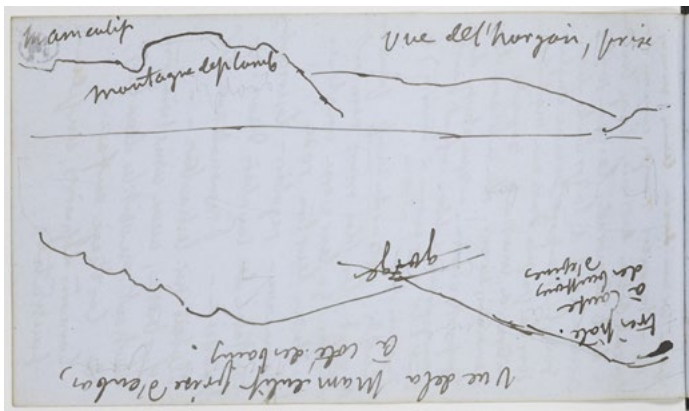 mamelif
montagne de plomb
Vue de l'horizon, prise
gorge
très pâle.
à cause
des buissons
d'épines
Vue de la mamelif prise d'en bas,
à côté des bains.